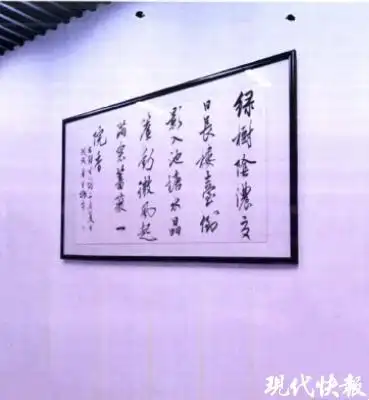 綠樹陰濃夏
日長樓臺倒
影入池塘水晶
簾動微風起
滿架薔薇一
院香
現代快報